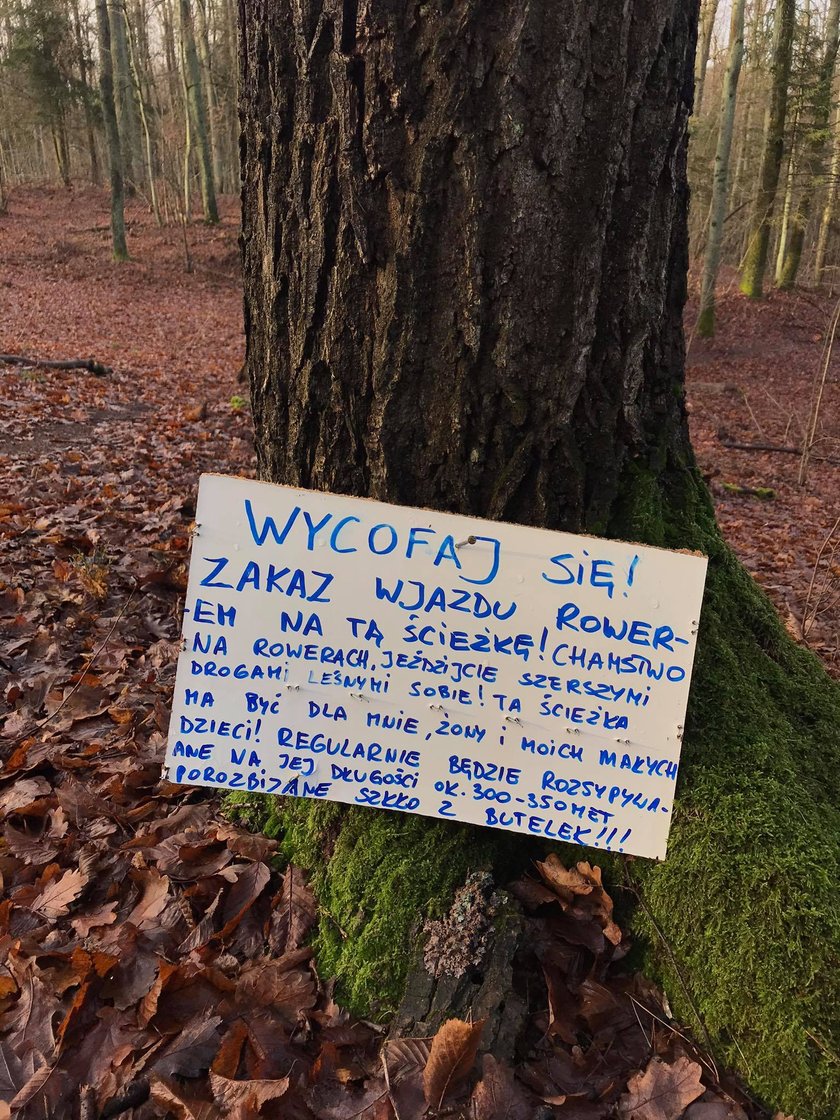 WYCOFAJ SIĘ!
ZAKAZ WJAZDU ROWER-
-EM NA TĄ ŚCIEŻKĘ! CHAMSTWO
NA ROWERACH, JEŹDZIJCIE SZERSZYMI
DROGAMI LEŚNYMI SOBIE! TA ŚCIEŻKA
MA BYĆ DLA MNIE, ŻONY i MOICH MAŁYCH
DZIECI! REGULARNIE BĘDZIE ROZSYPYWA-
ANE NA JEJ DŁUGOŚCI OK. 300-350MET
POROZBIJANE SZKŁO Z BUTELEK!!!